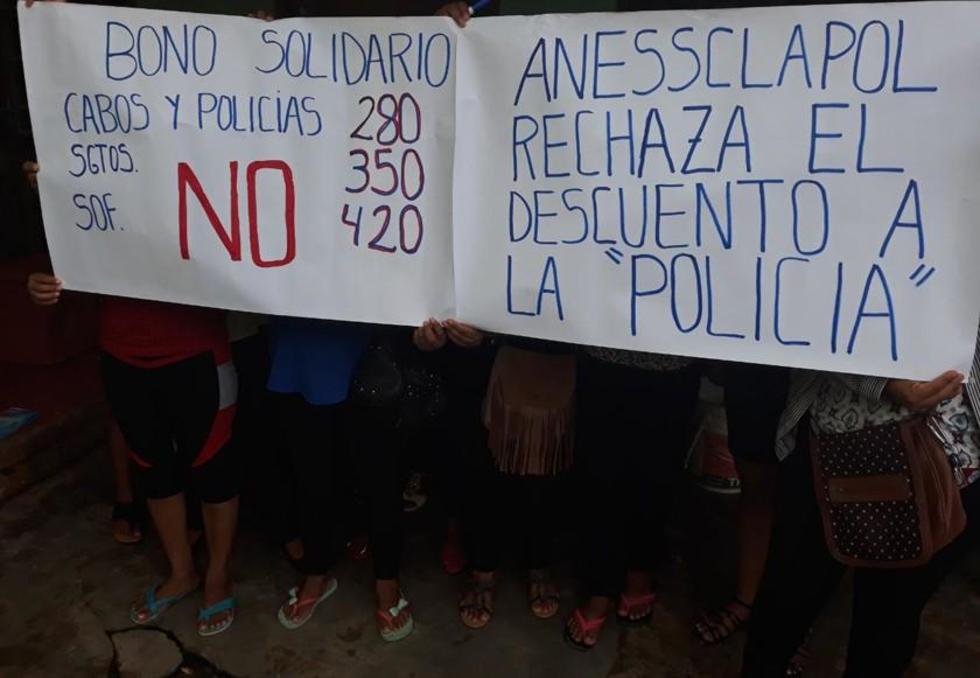 BONO SOLIDARIO
CABOS Y POLICÍAS 280
SGTOS. 350
SOF. NO 420
ANESSCLAPOL
RECHAZA EL
DESCUENTO A
LA "POLICÍA"